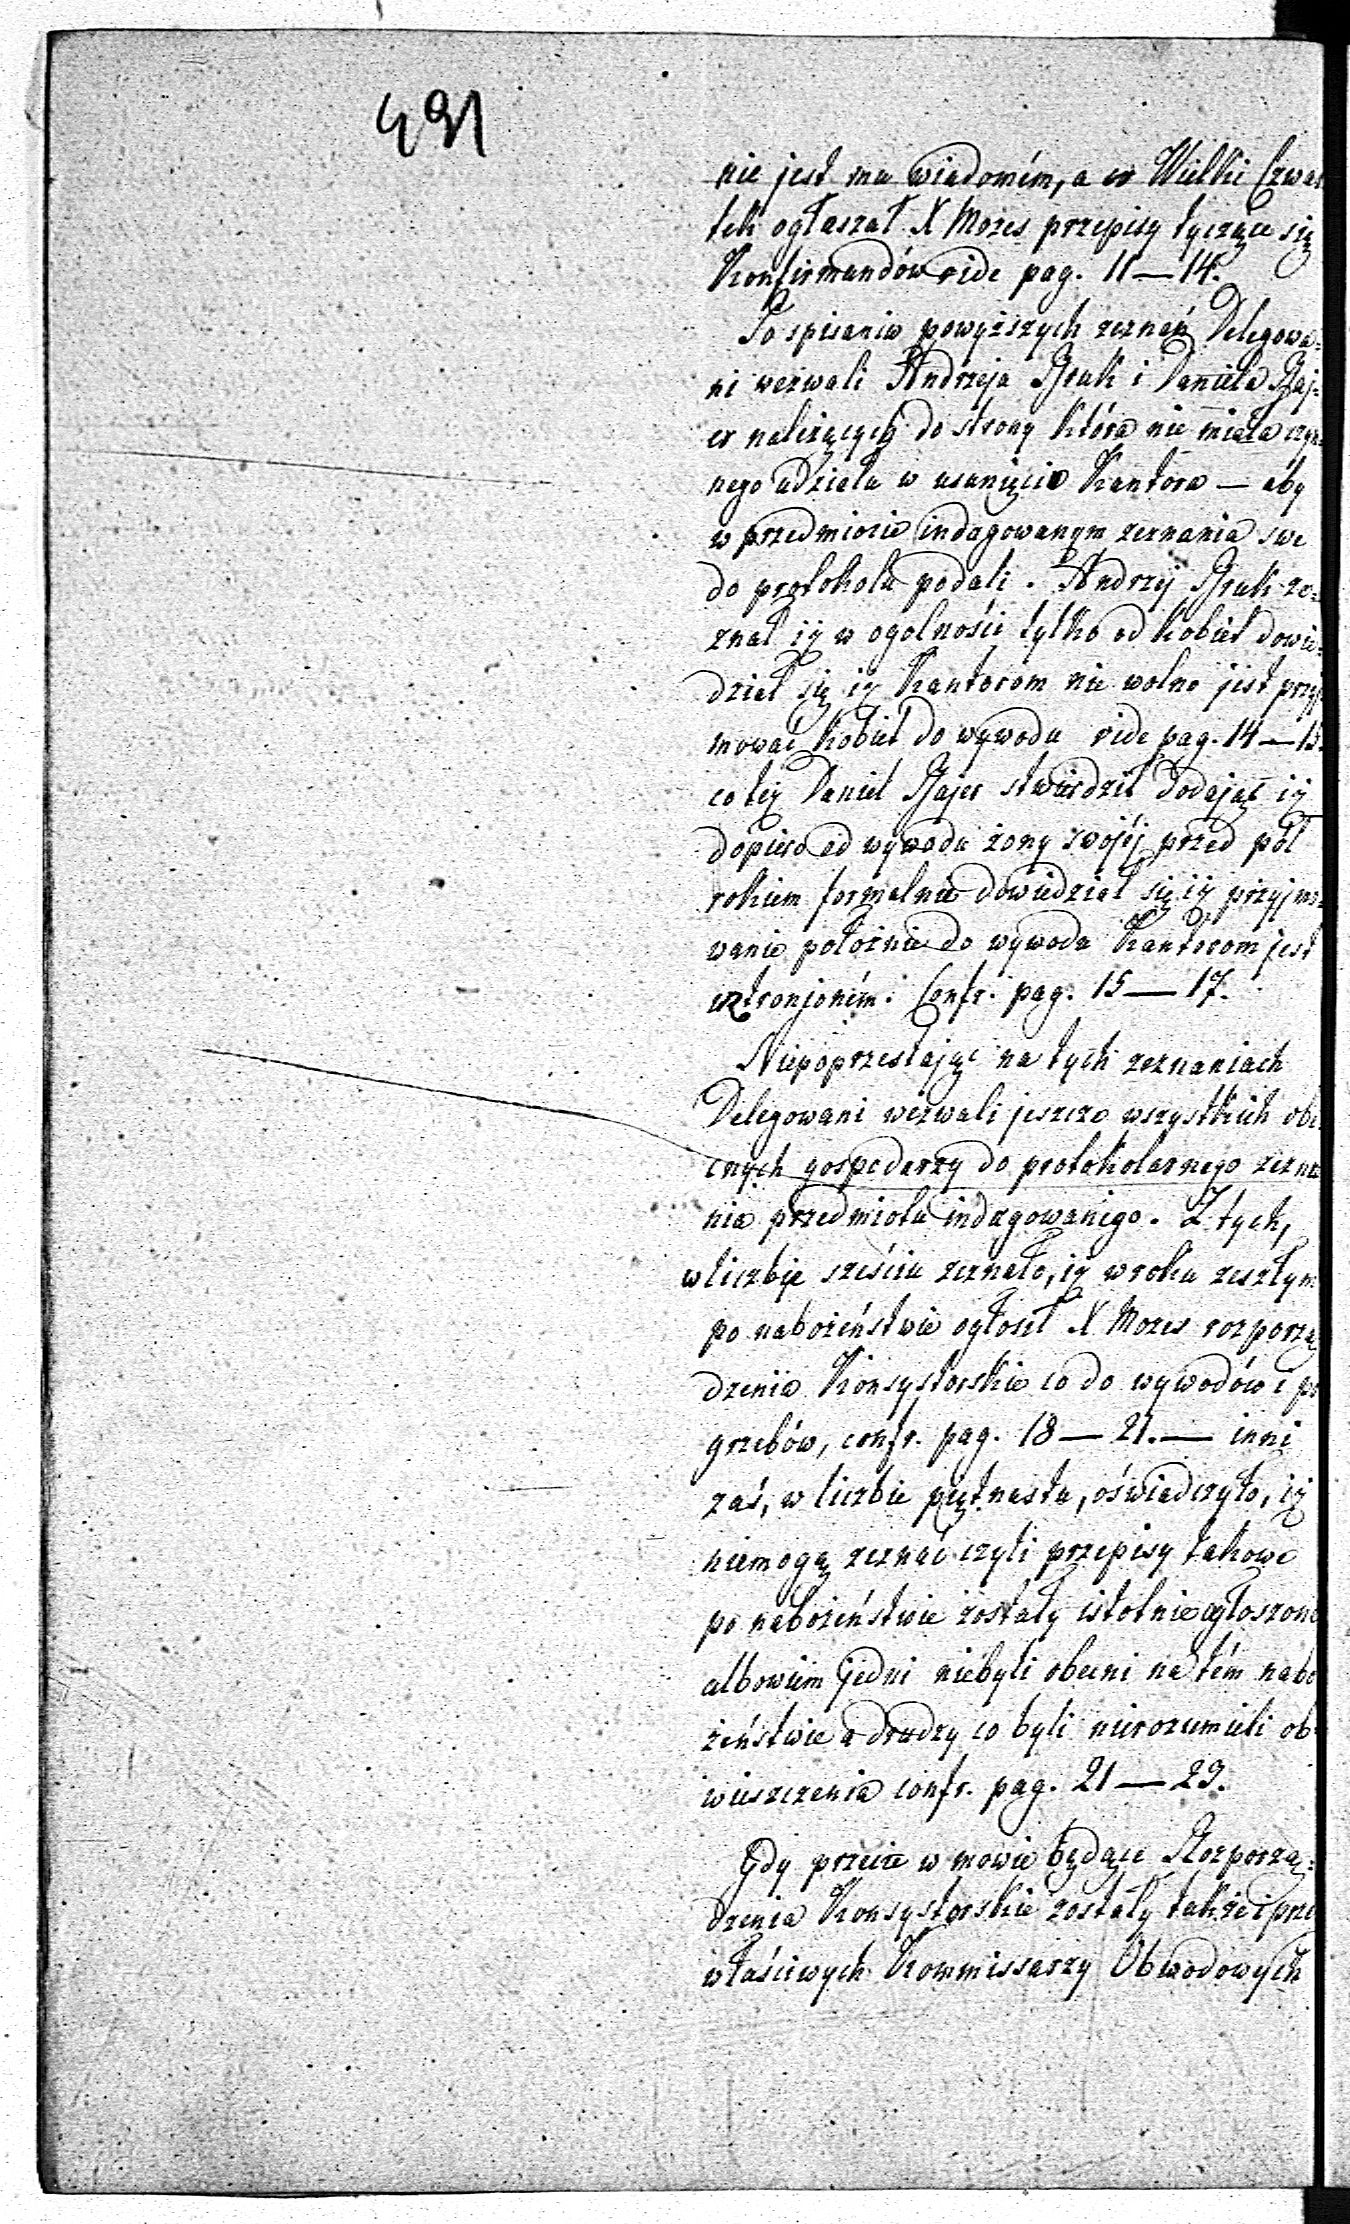 491
nie jest mu wiadomém, a w Wielki Czwar
tek ogłaszał X Mozes przepisy tyczące się
Konfirmandów vide pag. 11—14.
Po spisaniu powyższych zeznań Delegowa=
ni wezwali Andrzeja i Daniela Baj=
er należących do strony która nie miała czyn
nego udziału w usunięciu Kantora — aby
w przedmiocie indagowanym zeznania swe
do protokołu podali. Andrzej ze=
znał iż w ogolności tylko od kobiet dowie=
dział się iż Kantorom nie wolno jest przy
mować kobiet do wywodu vide pag. 14—15.
co też Daniel Bajer stwierdził dodając iż
dopiero od wywodu żony swojéj przed pół
rokiem formalnie dowiedział się iż przyjmo=
wanie położnic do wywodu Kantorom jest
wzbronioném. Confr. pag. 15—17.
Niepoprzestając na tych zeznaniach
Delegowani wezwali jeszcze wszystkich obe
cnych gospodarzy do protokolarnego zezna
nia przedmiotu indagowanego. Z tych,
w liczbie sześciu zeznało, iż w roku zeszłym
po nabożeństwie ogłosił X Mozes rozporzą
dzenia Konsystorskie co do wywodów i po
grzebów, confr. pag. 18—21.— inni
zaś, w liczbie piętnastu, oświadczyło, iż
niemogą zeznać czyli przepisy takowe
po nabożeństwie zostały istotnie ogłoszone
albowiem jedni niebyli obecni na tém nabo
żeństwie a drudzy co byli nierozumieli ob
wieszczenia confr. pag. 21—23.
Gdy przecie w mowie będące Rozporzą=
dzenia Konsystorskie zostały także i prze
właściwych Kommissarzy Obwodowych